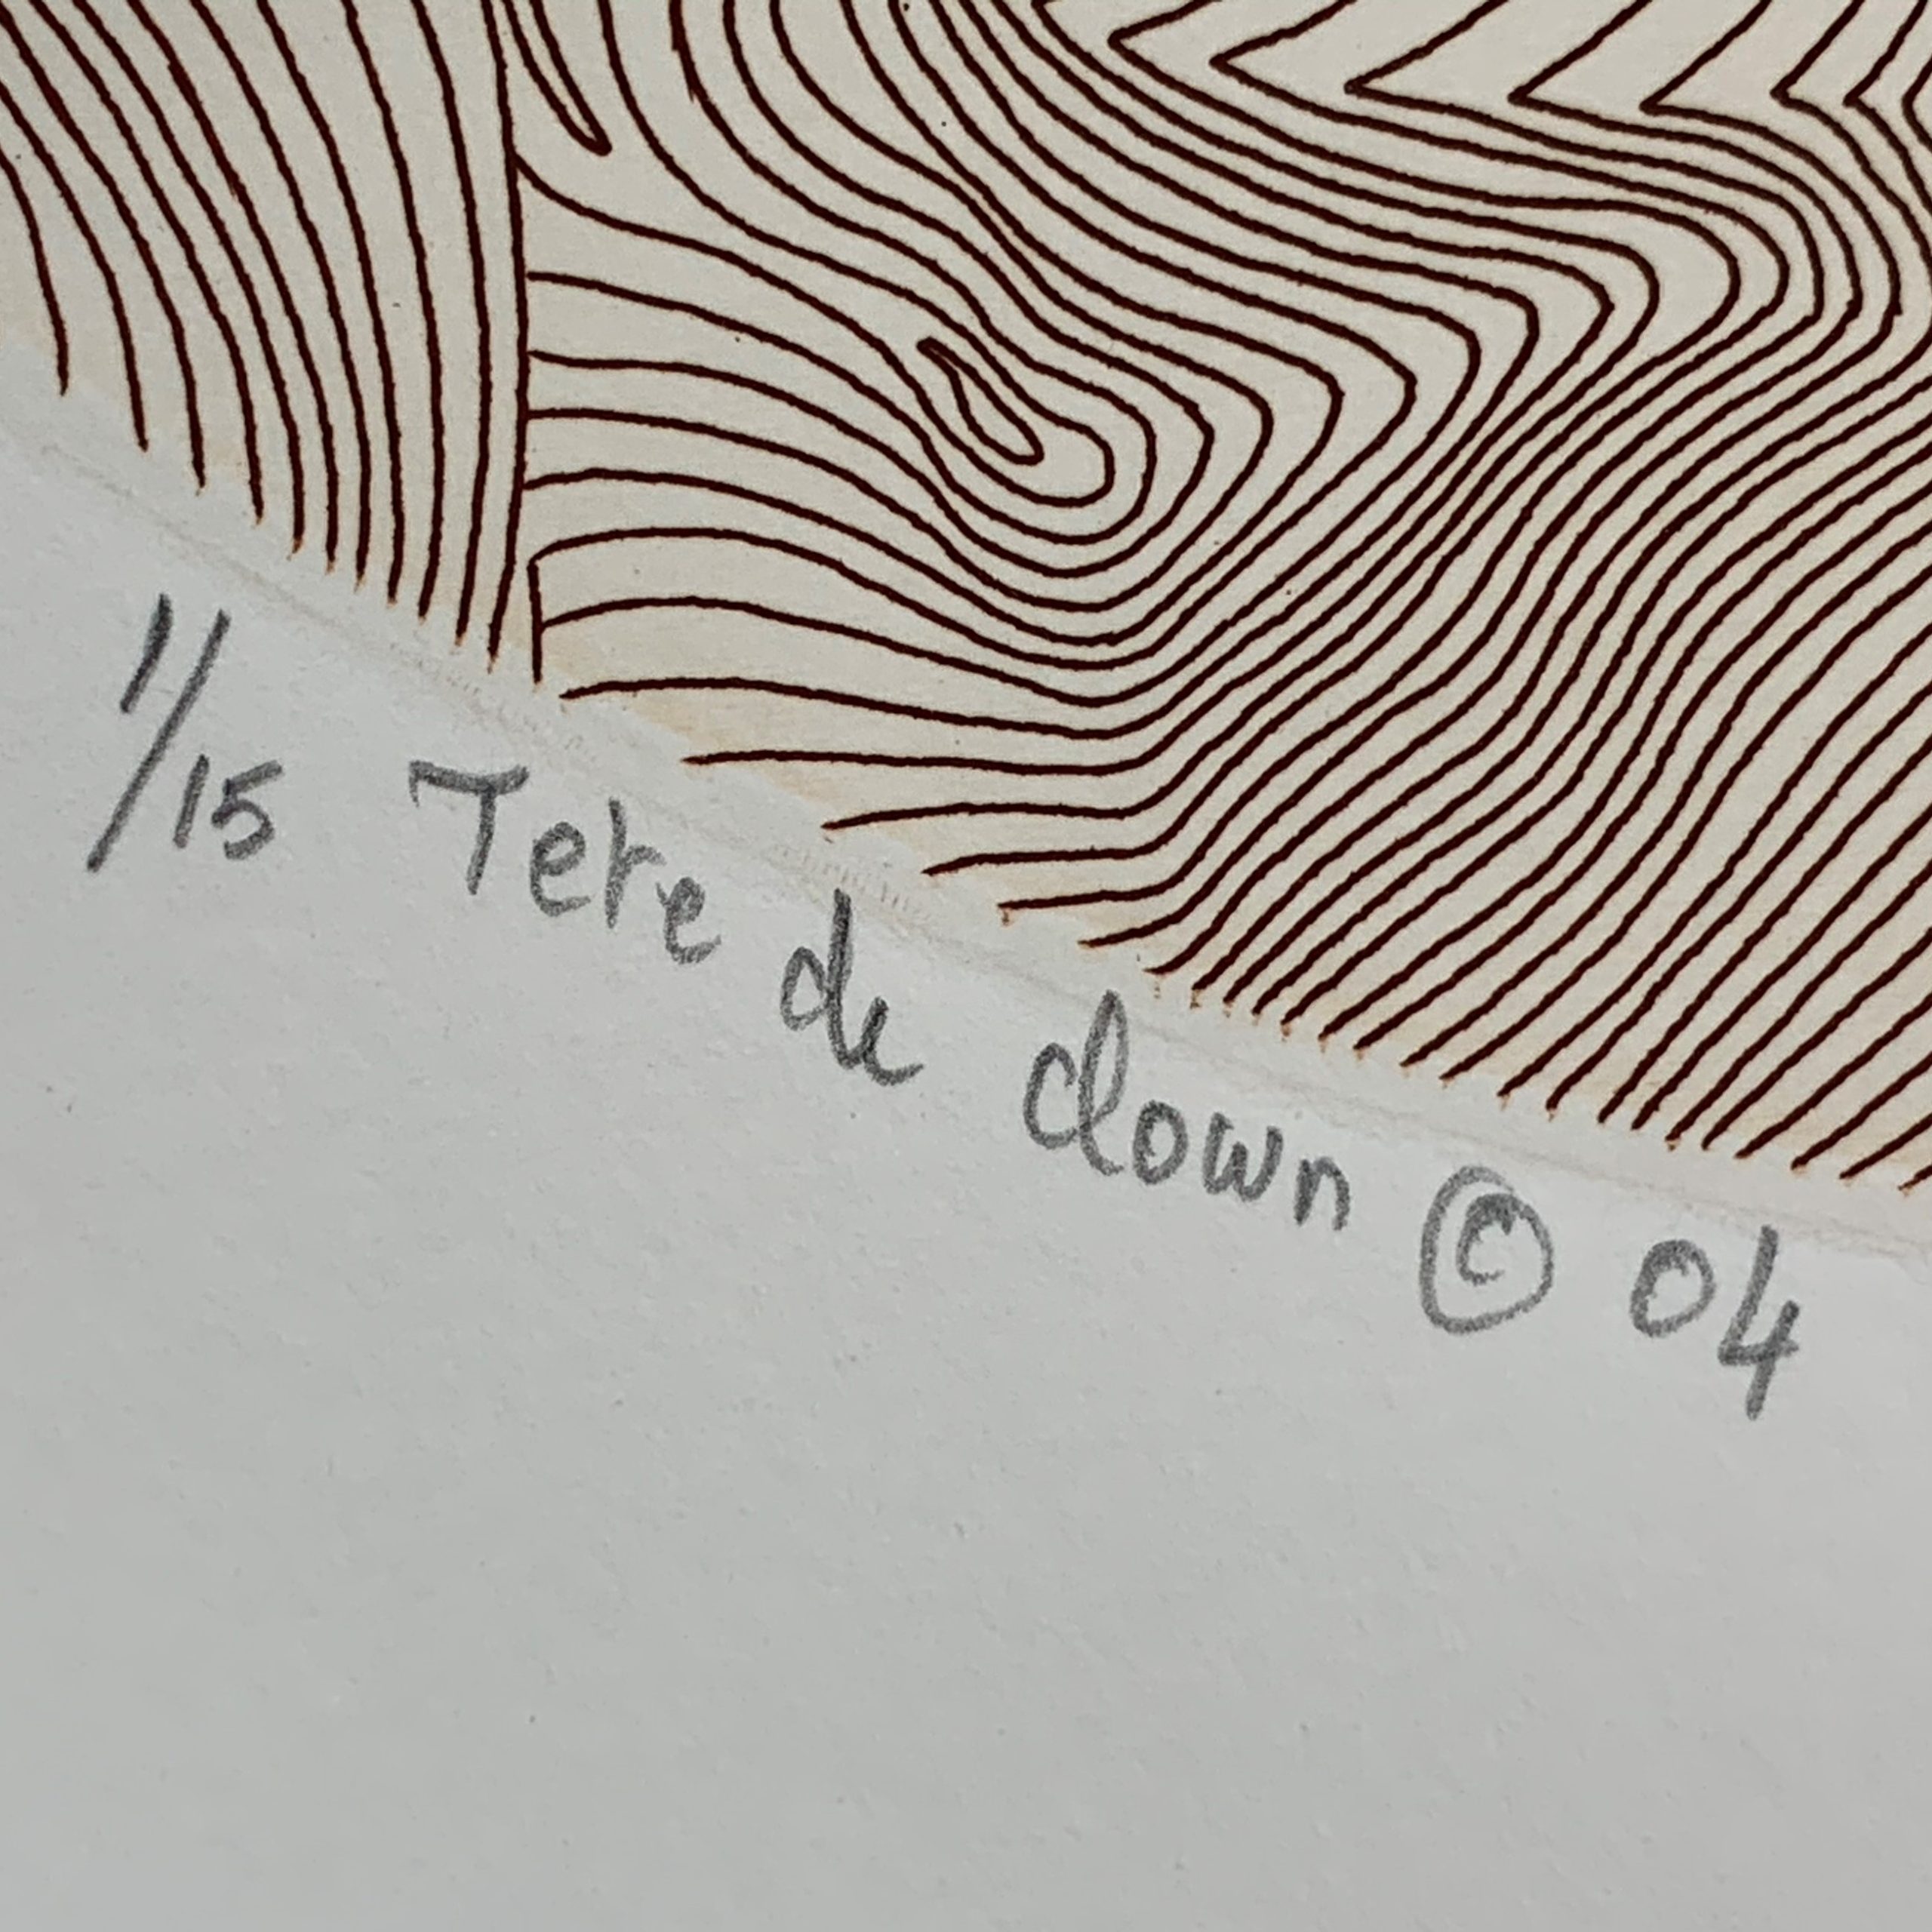 1/15 Tete de clown © 04